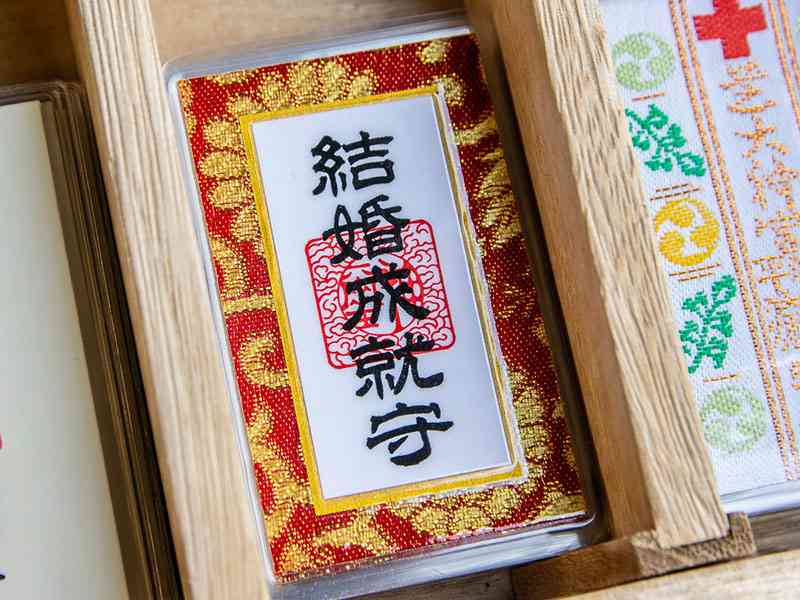 結婚成就守